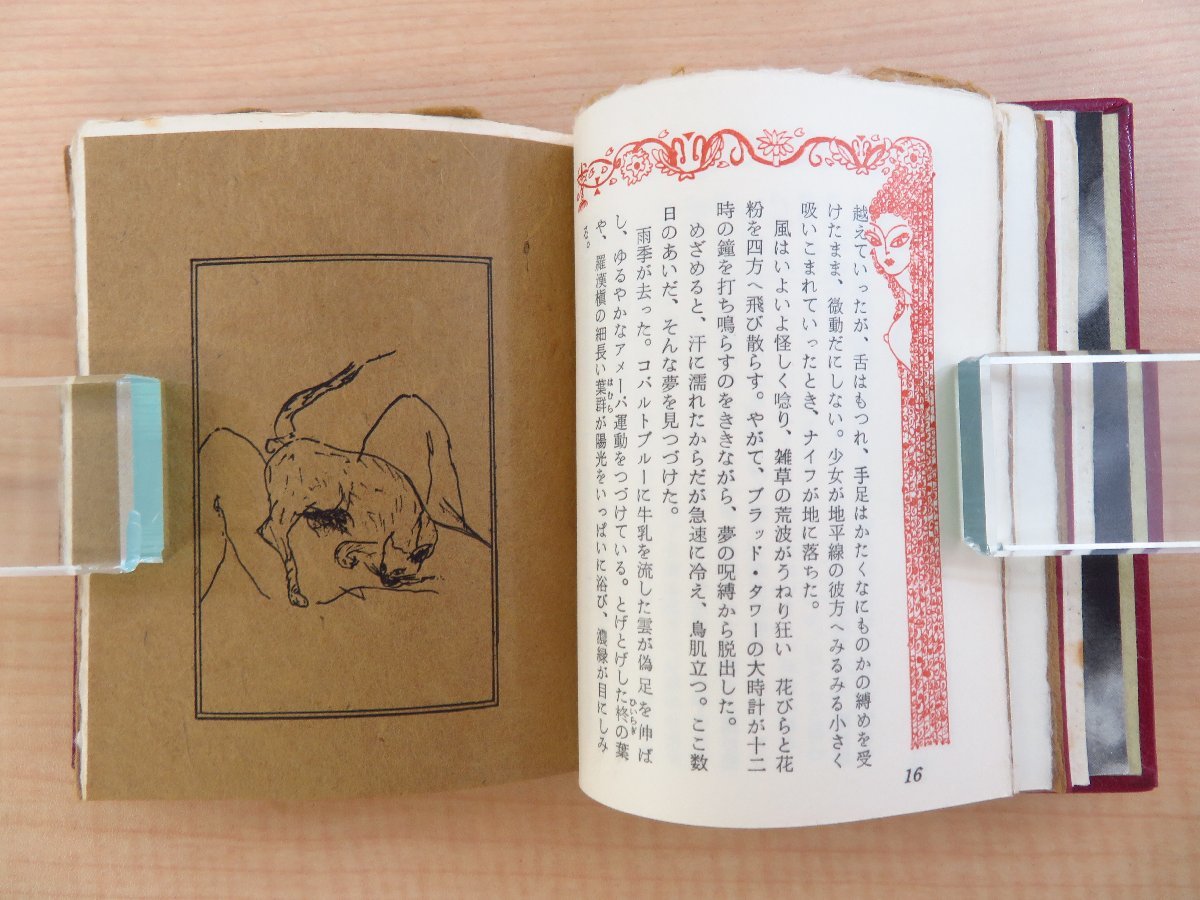 越えていったが、舌はもつれ、手足はかたくなにものかの縛めを受
けたまま、微動だにしない。少女が地平線の彼方へみるみる小さく
吸いこまれていったとき、ナイフが地に落ちた。
風はいよいよ怪しく唸り、雑草の荒波がうねり狂い　花びらと花
粉を四方へ飛び散らす。やがて、ブラッド・タワーの大時計が十二
時の鐘を打ち鳴らすのをききながら、夢の呪縛から脱出した。
めざめると、汗に濡れたからだが急速に冷え、鳥肌立つ。ここ数
日のあいだ、そんな夢を見つづけた。
雨季が去った。コバルトブルーに牛乳を流した雲が偽足を伸ば
し、ゆるやかなアメーバ運動をつづけている。とげとげした柊の葉
ひいらぎ
や、羅漢槇の細長い葉群が陽光をいっぱいに浴び、濃緑が目にしみ
はむら
る。
16